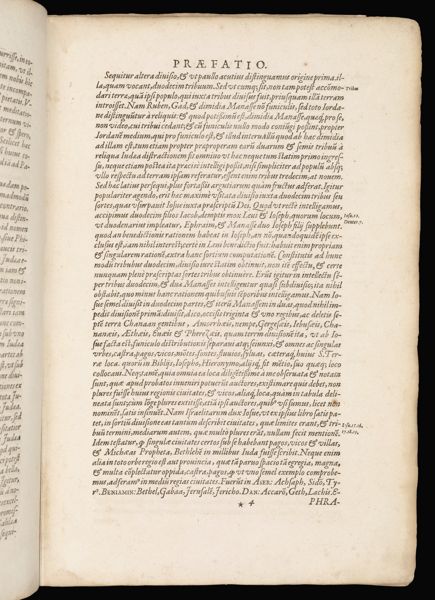 PRÆFATIO.
Sequitur altera divisio, & ut paullo acutius distinguamus origine prima il-
la, quam vocant, duodecim tribuum. Sed ut cumq; sit, non tam potest accōmo-
dari terra, quā ipsi populo, qui iuxta tribus divisus fuit, priusquam illā terram
introisset. Nam Ruben, Gad, & dimidia Manasse nō funiculis, sed toto Iorda-
ne distinguūtur à reliquis: & quod potissimū est, dimidia Manasse, quæq; pro se,
non video, cui tribui cedant, & cū funiculis nullo modo coniūgi possint, propter
Iordanē medium, qui pro funiculo est, & illud intervallū quod ab hac dimidia
ad illam est, tum etiam propter
reliqua Indæa distractionem sit omnino ut hac neque tum statim primo ingres-
su, neque etiam postea ita præcisè intelligi possit, nisi simpliciter ad populū absq;
ullo respectu ad terram ipsam referatur, essent enim tribus tredecim, at novem.
Sed hac latius persequi, plus fortassis argutiarum quàm fructus adferat. Igitur
populariter agendo, erit hac maximè usitata divisio iuxta duodecim tribus seu
sortes, quas usurpavit Iosue iuxta præscriptū Dei. Quod ut rectè intelligamus,
accipimus duodecim filios Iacob, demptis mox Leui & Ioseph, quorum locum,
ut duodenarius impleatur, Ephraim, & Manasse duo Ioseph filij supplebunt.
quod an benedictionis rationem habeat in Ioseph, an nō, quandoquidē ipse ex-
clusus est, iam nihil interest; certè in Leui benedictio fuit: habuit enim propriam
& singularem rationē, extra hanc sortium computationē. Constitutis ad hunc
modū tribubus duodecim, divisio iure statim obtinuit, non itē effectu, & certè
nunquam plenè præscriptas sortes tribus obtinuêre. Erūt igitur in intellectu sē-
per tribus duodecim, & duo Manasses intelliguntur quasi subdivisio; ita nihil
obstabit, quo minus hanc rationem quibusvis tēporibus intelligamus. Nam Io-
sue semel divisit in duodecim partes, & iterū Manassem in duas, quod nihil im-
pedit divisionē primā: divisit, dico, occisis triginta & uno regibus, ac deletis se-
ptē terræ Chanaan gentibus, Amorrhæis, nempe, Gergesæis, Iebusæis, Cha-
nanæis, Æthæis, Euæis & Pherezæis. quam terrim divisionē ita, ut ab Io-
sue facta est, funiculo distributionis separavi atq; seiunxi, & omnes ac singulas
urbes, castra, pagos, vicos, mōtes, fontes, fluvios, sylvas, cæteraq; huius S. Ter-
ræ loca. quorū in Biblijs, Iosepho, Hieronymo, alijsq; fit mētio, suo quæq; loco
collocans. Neq; ante, quia omnia ea loca diligētissimè à me observata & notata
sunt, quæ apud probatos inveniri potuerūt auctores, existimare quis debet, non
plures fuisse huius regionis civitates, & vicos aliaq; loca, quàm in tabula deli-
neata sunt; cùm longè plures extitisse, etiā ipsi auctores, quibus usi sumus, licet nō
nominēt, satis insinuēt. Nam Israelitarum dux Iosue, ut ex ipsius libro satis pa-
tet, in sortiū divisione eas tantum describit civitates, quæ limites erant, & tri-
buū termini, mediarum autem, quæ multo plures erāt, nullam fecit mentionē.
Idem testatur, q; singulæ civitates certos sub se habebant pagos, vicos & villas,
& Michæas Propheta, Bethlehē in millibus Iuda fuisse scribit. Neque enim
alia in toto orbe regio est aut provincia, quæ tā parvo spacio tā egregia, magna,
& multa cōplectatur oppida, castra, pagos: q; ut uno semel exemplo comprobe-
mus, adferam in medium regias civitates. Fuerūt in Aser: Achsaph, Sidō, Ty-
rº. Beniamin: Bethel, Gabaa, Ierusalē, Iericho. Dan: Accarō, Geth, Lachis. E-
* 4
PHRA-